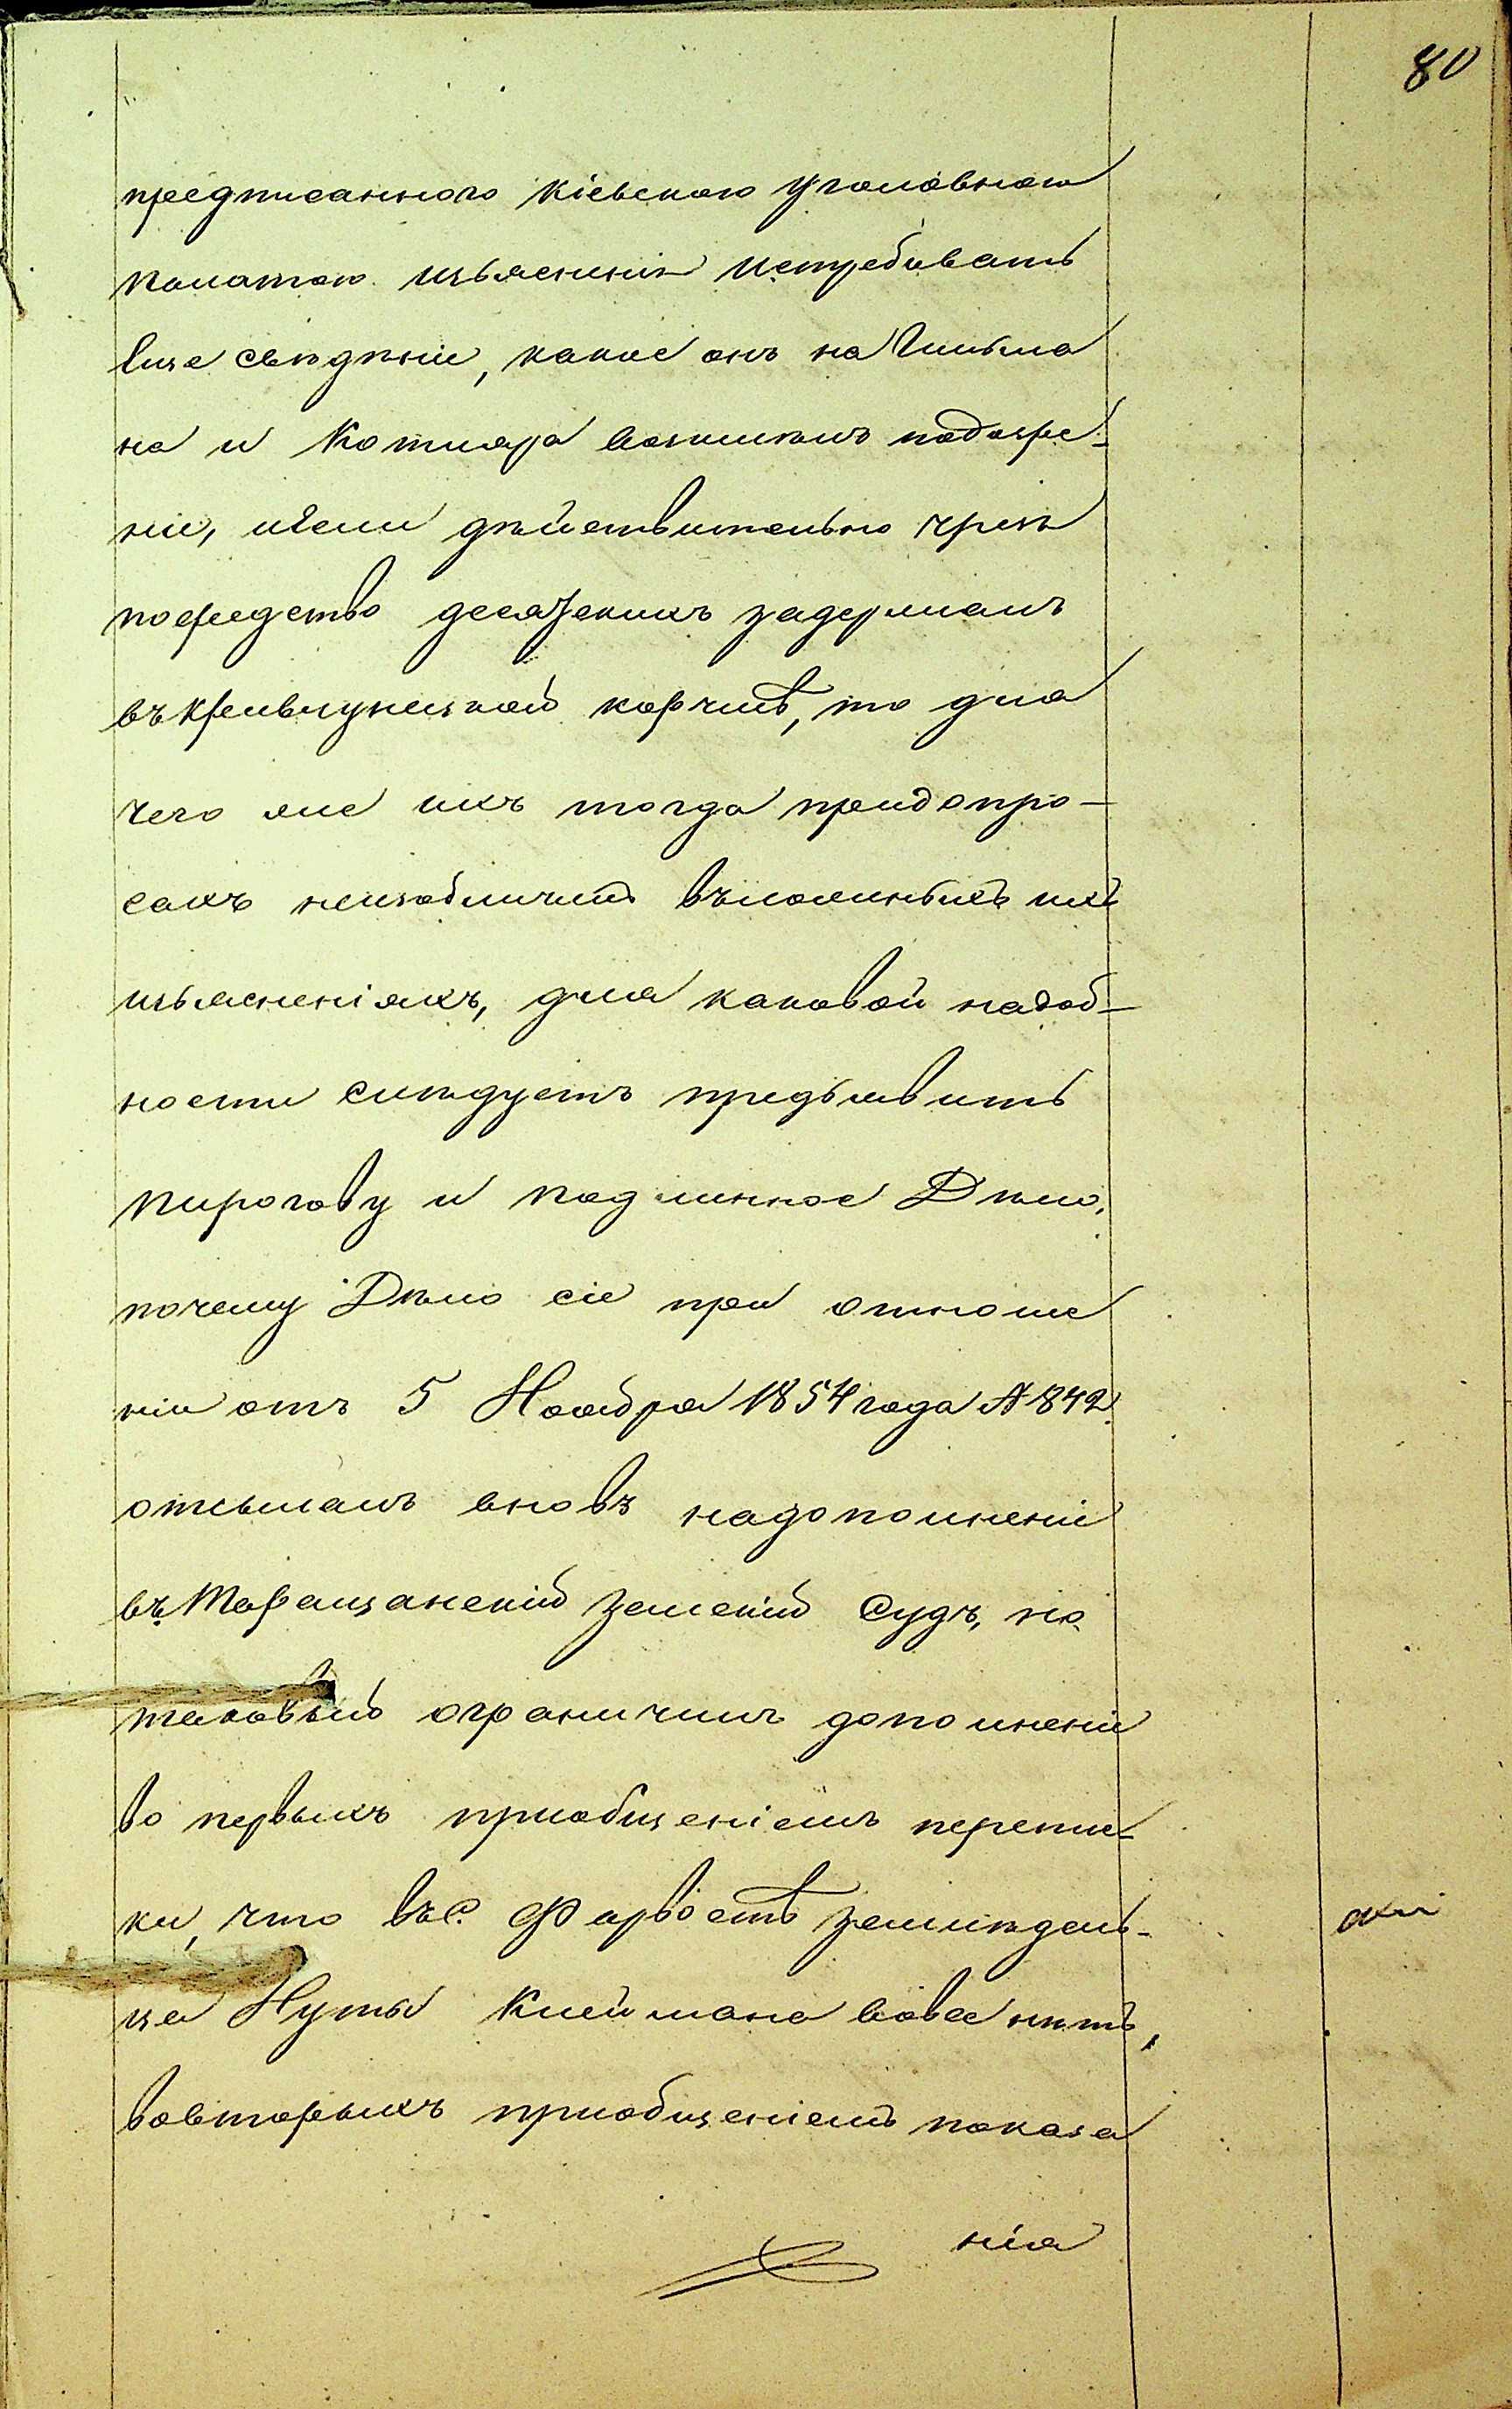 80
предписанного Кіевскою уголовною
палатою изъясненія истребовать
еще свѣдѣніе, какое онъ на Гильма
на и Котляра возимѣлъ подозре-
ніе, и если дѣйствительно чрезъ
посредство десятскихъ задержалъ
въ корчмѣ, то для
чего же ихъ тогда придопро-
сахъ неизобличилъ въложныхъ ихъ
изъясненіяхъ, для каковой надоб-
ности слѣдуетъ предъявить
Пирогову и подлинное Дѣло,
почему Дѣло сіе при отноше
ніи отъ 5 Ноября 1854 года № 842.
отсылалъ вновь надополненіе
въ Таращанскій Земскій Судъ, но
таковый ограничилъ дополненіе
во первыхъ приобщеніемъ перепис-
ки, что въ с. земледель-
ца Нуты Клеймана вовсе нѣтъ,
вовторыхъ приобщеніемъ показа
нія